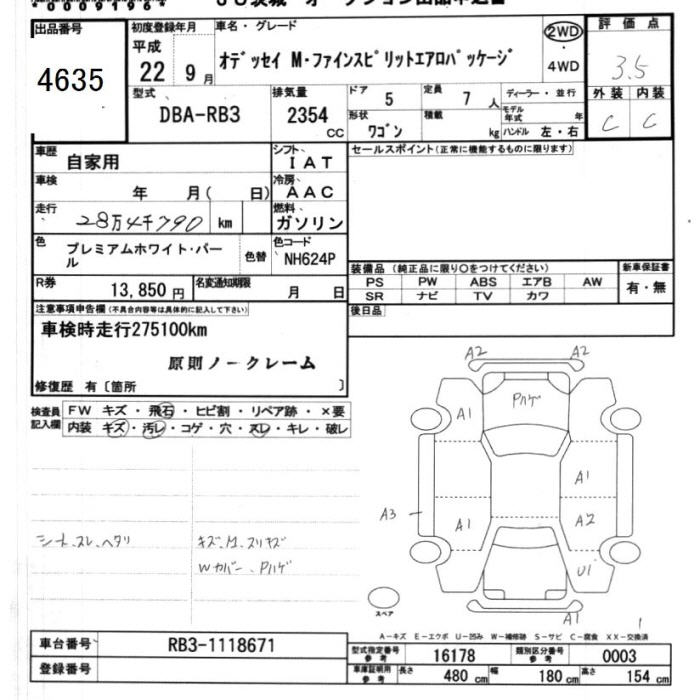 出品番号
4635
初度登録年月
平成
22年9月
車名・グレード
オデッセイ M・ファインスピリットエアロパッケージ
2WD
・
4WD
評価点
3.5
型式
DBA-RB3
排気量
2354
CC
ドア
5
定員
7人
ディーラー・並行
形状
ワゴン
積載
kg
モデル年式
年
ハンドル 左・右
外装 内装
C C
車歴
自家用
シフト、
IAT
セールスポイント(正常に機能するものに限ります)
車検
年 月( 日)
冷房、
AAC
走行
28万4千790 km
燃料、
ガソリン
色
プレミアムホワイト・パール
色替
色コード
NH624P
装備品 (純正品に限り〇をつけてください)
新車保証書
PS PW ABS エアB AW
SR ナビ TV カワ
有・無
R券
13,850円
名変通知期限
月 日
後日品
注意事項申告欄(不具合内容等は具体的に記入して下さい)
車検時走行275100km
原則ノークレーム
修復歴 有〔箇所 〕
検査員
記入欄
FW キズ・飛石・ヒビ割・リペア跡・×要
内装 キズ・汚レ・コゲ・穴・スレ・キレ・破レ
A2 A2
A1
Pハゲ
A1
A3
A1
A2
U1
A1
シート スレ、ヘタリ
キズ、M、スリキズ
Wカバー、Pハゲ
スペア
A-キズ E-エクボ U-凹み W-補修跡 S-サビ C-腐食 XX-交換済
車台番号
RB3-1118671
型式指定番号
参考
16178
類別区分番号
参考
0003
登録番号
車庫証明用
参考
長さ
480cm
幅
180cm
高さ
154cm